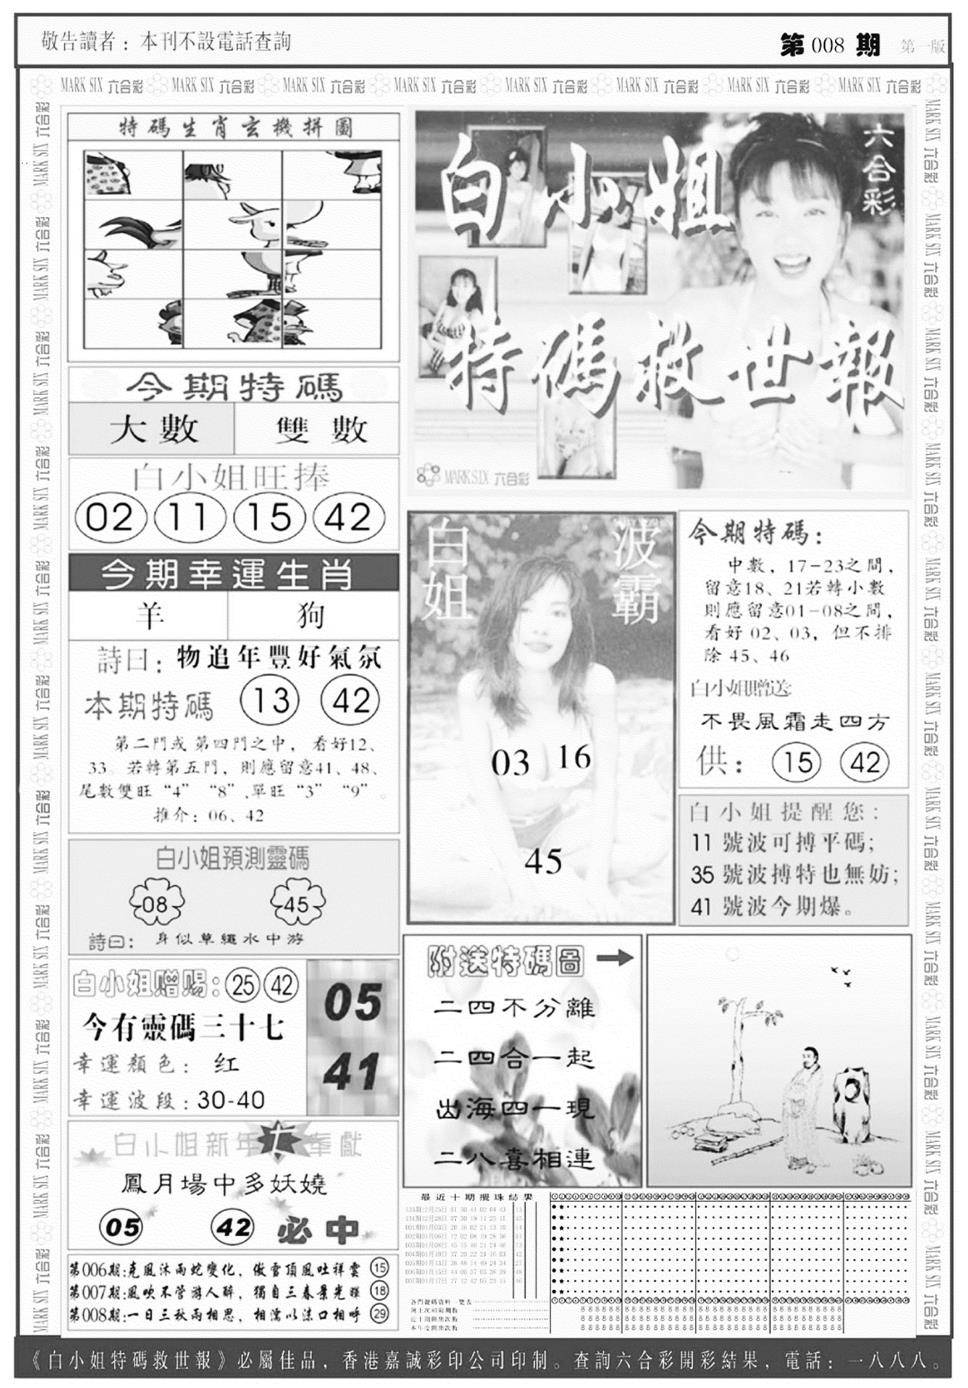 敬告讀者：本刊不設電話查詢
第008期 第一版
MARK SIX 六合彩 MARK SIX 六合彩 MARK SIX 六合彩 MARK SIX 六合彩 MARK SIX 六合彩 MARK SIX 六合彩 MARK SIX 六合彩 MARK SIX 六合彩
特碼生肖玄機拼圖
今期特碼
大數 雙數
白小姐旺捧
02 11 15 42
今期幸運生肖
羊 狗
詩曰：物追年豐好氣氛
本期特碼 13 42
第二門或第四門之中，看好12、
33 若轉第五門，則應留意41、48、
尾數雙旺“4”“8”,單旺“3”“9”。
推介：06、42
白小姐預測靈碼
08 45
詩曰：身似草繩水中游
白小姐赠赐：25 42
今有靈碼三十七
幸運顏色：红
幸運波段：30-40
05
41
白小姐新年 奉獻
鳳月場中多妖嬈
05 42 必中
第006期:克風沐雨蛇變化，傲雪頂風吐祥雲 15
第007期:風吹不管游人醉，獨自三春景光輝 18
第008期:一日三秋兩相思，相濡以沫口相呼 29
六合彩
白小姐
特碼救世報
MARK SIX 六合彩
白姐 波霸
03 16
45
今期特碼：
中數，17-23之間，
留意18、21若轉小數
則應留意01-08之間，
看好 02、03，但不排
除 45、46
白小姐贈送:
不畏風霜走四方
供： 15 42
白小姐提醒您：
11 號波可搏平碼；
35 號波搏特也無妨；
41 號波今期爆。
附送特碼圖
二四不分離
二四合一起
出海四一現
二八喜相連
最近十期攪珠結果
《白小姐特碼救世報》必屬佳品，香港嘉誠彩印公司印制。查詢六合彩開彩結果，電話：一八八八。